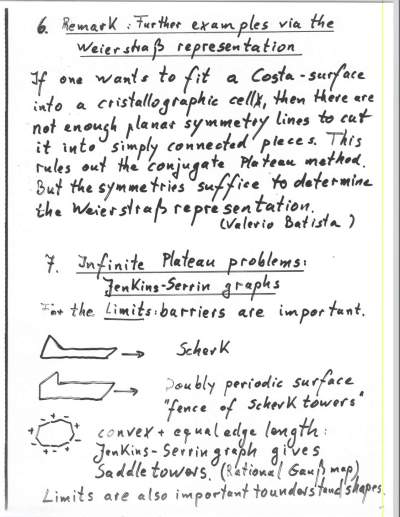 6. Remark: Further examples via the
Weierstraß representation
If one wants to fit a Costa-surface
into a cristallographic cell, then there are
not enough planar symmetry lines to cut
it into simply connected pieces. This
rules out the conjugate Plateau method.
But the symmetries suffice to determine
the Weierstraß representation.
(Valerio Batista)
7. Infinite Plateau problems:
Jenkins-Serrin graphs
For the Limits: barriers are important.
→ Scherk
→ Doubly periodic surface
"fence of Scherk towers"
+ - + - + - + -
convex + equal edge length:
Jenkins-Serrin graph gives
Saddle towers. (Rational Gauß map)
Limits are also important to understand shapes.